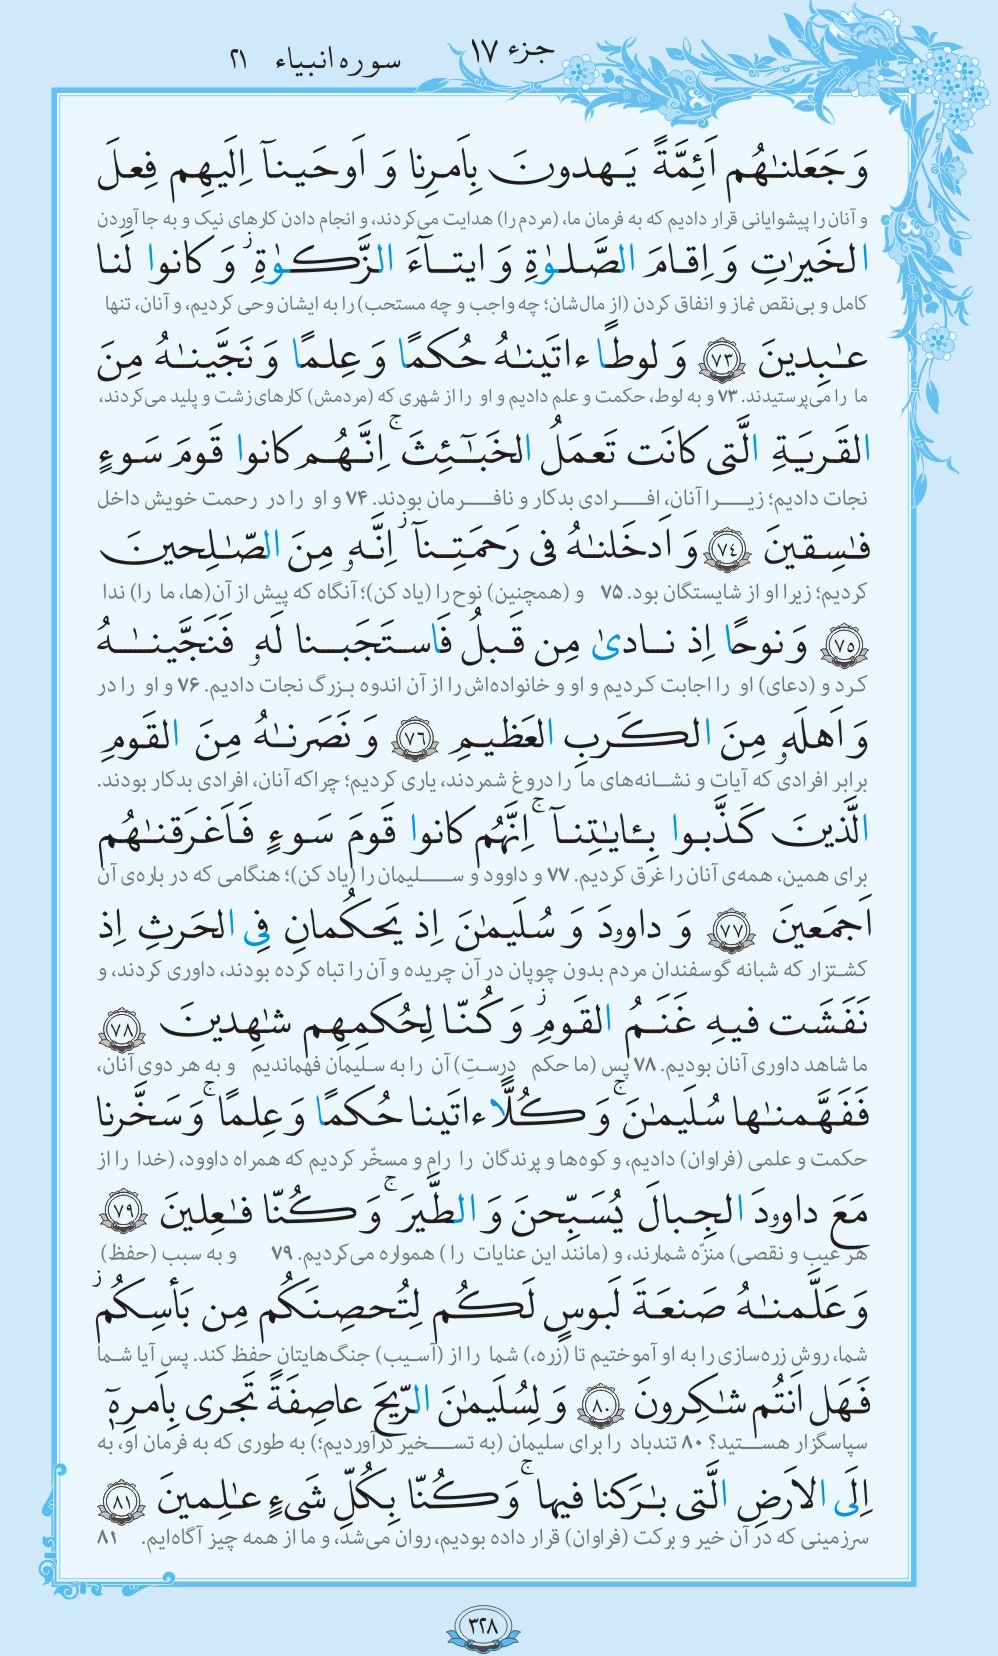 جزء ۱۷
سوره انبیاء ۲۱
وَ جَعَلنٰهُم اَئِمَّةً يَهدونَ بِاَمرِنا وَ اَوحَينآ اِلَيهِم فِعلَ
و آنان را پیشوایانی قرار دادیم که به فرمان ما، (مردم را) هدایت می‌کردند، و انجام دادن کارهای نیک و به جا آوردن
الخَيرٰتِ وَ اِقامَ الصَّلوٰةِ وَ ايتآءَ الزَّكوٰةِ ۖ وَ كانوا لَنا
کامل و بی‌نقص نماز و انفاق کردن (از مال‌شان؛ چه واجب و چه مستحب) را به ایشان وحی کردیم، و آنان، تنها
عٰبِدينَ ﴿٧٣﴾ وَ لوطًا ءاتَينٰهُ حُكمًا وَ عِلمًا وَ نَجَّينٰهُ مِنَ
ما را می‌پرستیدند. ۷۳ و به لوط، حکمت و علم دادیم و او را از شهری که (مردمش) کارهای زشت و پلید می‌کردند،
القَريَةِ الَّتى كانَت تَعمَلُ الخَبٰٓئِثَ ۚ اِنَّهُم كانوا قَومَ سَوءٍ
نجات دادیم؛ زیرا آنان، افرادی بدکار و نافرمان بودند. ۷۴ و او را در رحمت خویش داخل
فٰسِقينَ ﴿٧٤﴾ وَ اَدخَلنٰهُ فى رَحمَتِنآ ۖ اِنَّهٗ مِنَ الصّٰلِحينَ
کردیم؛ زیرا او از شایستگان بود. ۷۵ و (همچنین) نوح را (یاد کن)؛ آنگاه که پیش از آن(ها، ما را) ندا
﴿٧٥﴾ وَ نوحًا اِذ نادىٰ مِن قَبلُ فَاستَجَبنا لَهٗ فَنَجَّينٰهُ
کرد و (دعای) او را اجابت کردیم و او و خانواده‌اش را از آن اندوه بزرگ نجات دادیم. ۷۶ و او را در
وَ اَهلَهٗ مِنَ الكَربِ العَظيمِ ﴿٧٦﴾ وَ نَصَرنٰهُ مِنَ القَومِ
برابر افرادی که آیات و نشانه‌های ما را دروغ شمردند، یاری کردیم؛ چراکه آنان، افرادی بدکار بودند.
الَّذينَ كَذَّبوا بِـٔايٰتِنآ ۚ اِنَّهُم كانوا قَومَ سَوءٍ فَاَغرَقنٰهُم
برای همین، همه‌ی آنان را غرق کردیم. ۷۷ و داوود و سلیمان را (یاد کن)؛ هنگامی که در باره‌ی آن
اَجمَعينَ ﴿٧٧﴾ وَ داوۥدَ وَ سُلَيمٰنَ اِذ يَحكُمانِ فِى الحَرثِ اِذ
کشتزار که شبانه گوسفندان مردم بدون چوپان در آن چریده و آن را تباه کرده بودند، داوری کردند، و
نَفَشَت فيهِ غَنَمُ القَومِ ۖ وَ كُنّا لِحُكمِهِم شٰهِدينَ ﴿٧٨﴾
ما شاهد داوری آنان بودیم. ۷۸ پس (ما حکم درستِ) آن را به سلیمان فهماندیم و به هر دوی آنان،
فَفَهَّمنٰها سُلَيمٰنَ ۚ وَ كُلًّا ءاتَينا حُكمًا وَ عِلمًا ۚ وَ سَخَّرنا
حکمت و علمی (فراوان) دادیم، و کوه‌ها و پرندگان را رام و مسخّر کردیم که همراه داوود، (خدا را از
مَعَ داوۥدَ الجِبالَ يُسَبِّحنَ وَ الطَّيرَ ۚ وَ كُنّا فٰعِلينَ ﴿٧٩﴾
هر عیب و نقصی) منزّه شمارند، و (مانند این عنایات را) همواره می‌کردیم. ۷۹ و به سبب (حفظ)
وَ عَلَّمنٰهُ صَنعَةَ لَبوسٍ لَكُم لِتُحصِنَكُم مِن بَأسِكُم ۖ
شما، روش زره‌سازی را به او آموختیم تا (زره،) شما را از (آسیب) جنگ‌هایتان حفظ کند. پس آیا شما
فَهَل اَنتُم شٰكِرونَ ﴿٨٠﴾ وَ لِسُلَيمٰنَ الرّيحَ عاصِفَةً تَجرى بِاَمرِهٖٓ
سپاسگزار هستید؟ ۸۰ تندباد را برای سلیمان (به تسخیر درآوردیم؛) به طوری که به فرمان او، به
اِلَى الاَرضِ الَّتى بٰرَكنا فيها ۚ وَ كُنّا بِكُلِّ شَىءٍ عٰلِمينَ ﴿٨١﴾
سرزمینی که در آن خیر و برکت (فراوان) قرار داده بودیم، روان می‌شد، و ما از همه چیز آگاه‌ایم. ۸۱
۳۲۸